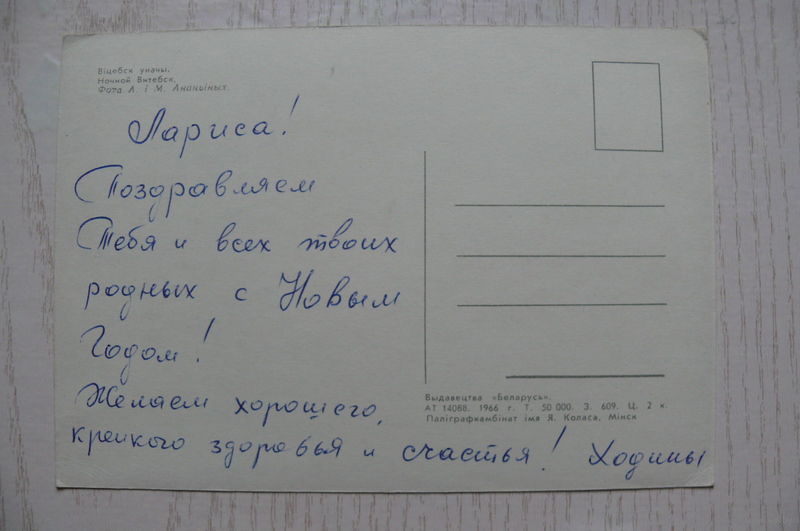 Віцебск уначы.
Ночной Витебск.
Фота Л. і М. Ананьіных.
Лариса!
Поздравляем
Тебя и всех твоих
родных с Новым
Годом!
Желаем хорошего,
крепкого здоровья и счастья! Ходины
Выдавецтва «Беларусь».
АТ 14088. 1966 г. Т. 50 000. З. 609. Ц. 2 к.
Паліграфкамбінат імя Я. Коласа, Мінск